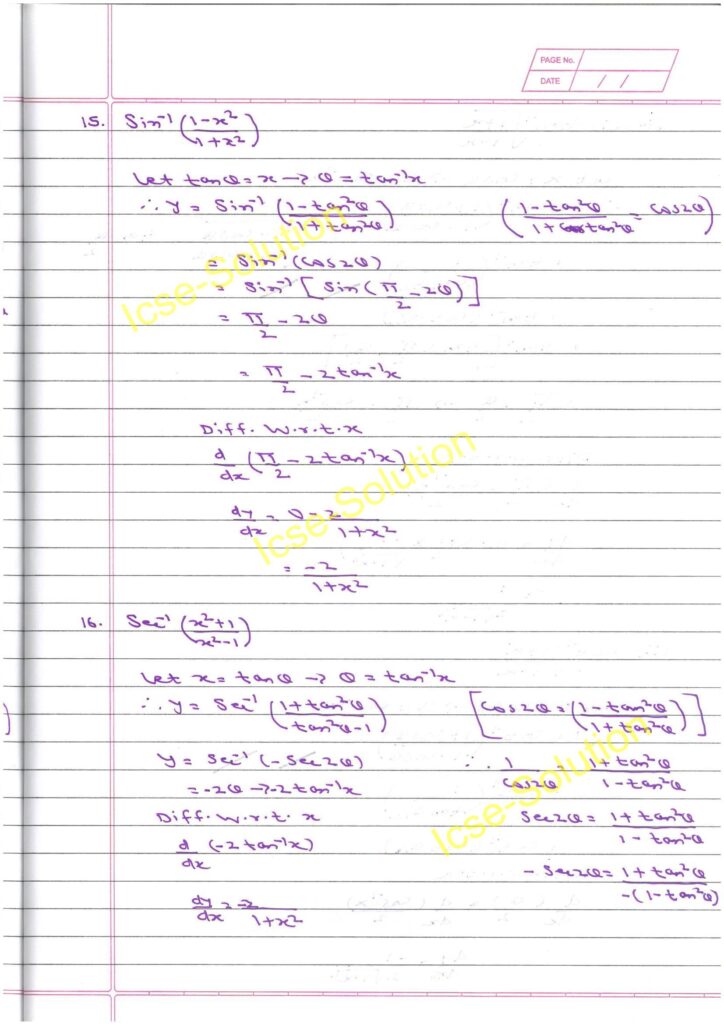 PAGE No.
DATE / /
15. Sin⁻¹ (1-x²/1+x²)
Let tanθ = x → θ = tan⁻¹x
∴ y = Sin⁻¹ (1-tan²θ/1+tan²θ) (1-tan²θ/1+tan²θ = cos2θ)
= Sin⁻¹ (cos2θ)
= Sin⁻¹ [Sin(π/2 - 2θ)]
= π/2 - 2θ
= π/2 - 2tan⁻¹x
Diff. w.r.t. x
d/dx (π/2 - 2tan⁻¹x)
dy/dx = 0 - 2/1+x²
= -2/1+x²
16. Sec⁻¹ (x²+1/x²-1)
Let x = tanθ → θ = tan⁻¹x
∴ y = Sec⁻¹ (1+tan²θ/tan²θ-1) [cos2θ = (1-tan²θ/1+tan²θ)]
y = Sec⁻¹ (-Sec2θ) ∴ 1/cos2θ = 1+tan²θ/1-tan²θ
= -2θ → -2tan⁻¹x
Diff. w.r.t. x Sec2θ = 1+tan²θ/1-tan²θ
d/dx (-2tan⁻¹x)
-Sec2θ = 1+tan²θ/-(1-tan²θ)
dy/dx = -2/1+x²
Icse-Solution
Icse-Solution
Icse-Solution